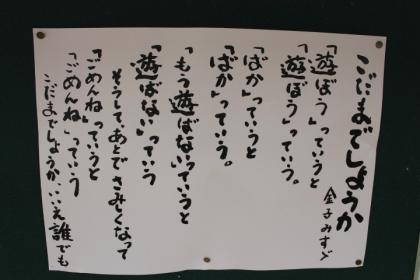 こだまでしょうか
金子みすゞ
「遊ぼう」っていうと
「遊ぼう」っていう。
「ばか」っていうと
「ばか」っていう。
「もう遊ばない」っていうと
「遊ばない」っていう
そうして、あとでさみしくなって
「ごめんね」っていうと
「ごめんね」っていう
こだまでしょうか、いいえ誰でも